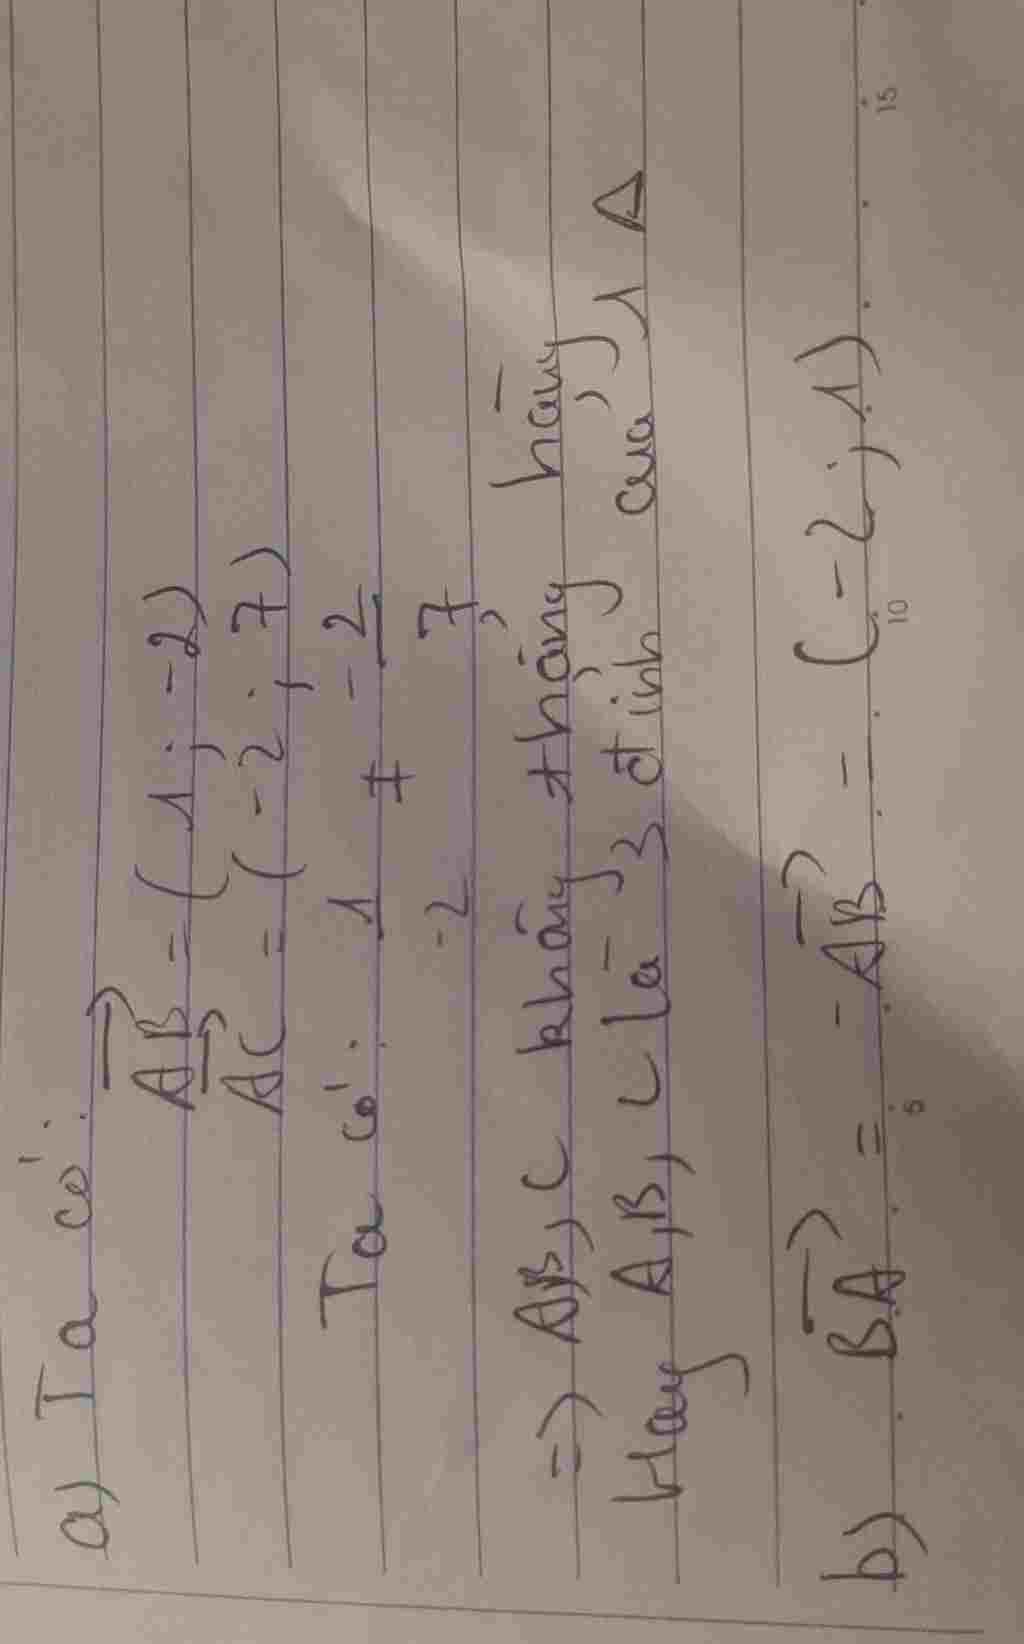 a) Ta có:
AB→ = (1; -2)
AC→ = (-2; 7)
Ta có: 1/-2 ≠ -2/7
=> A,B, C không thẳng hàng
Hay A,B, C là 3 đỉnh của 1 Δ
b) BA→ = -AB→ = (-2; 1)
5 10 15